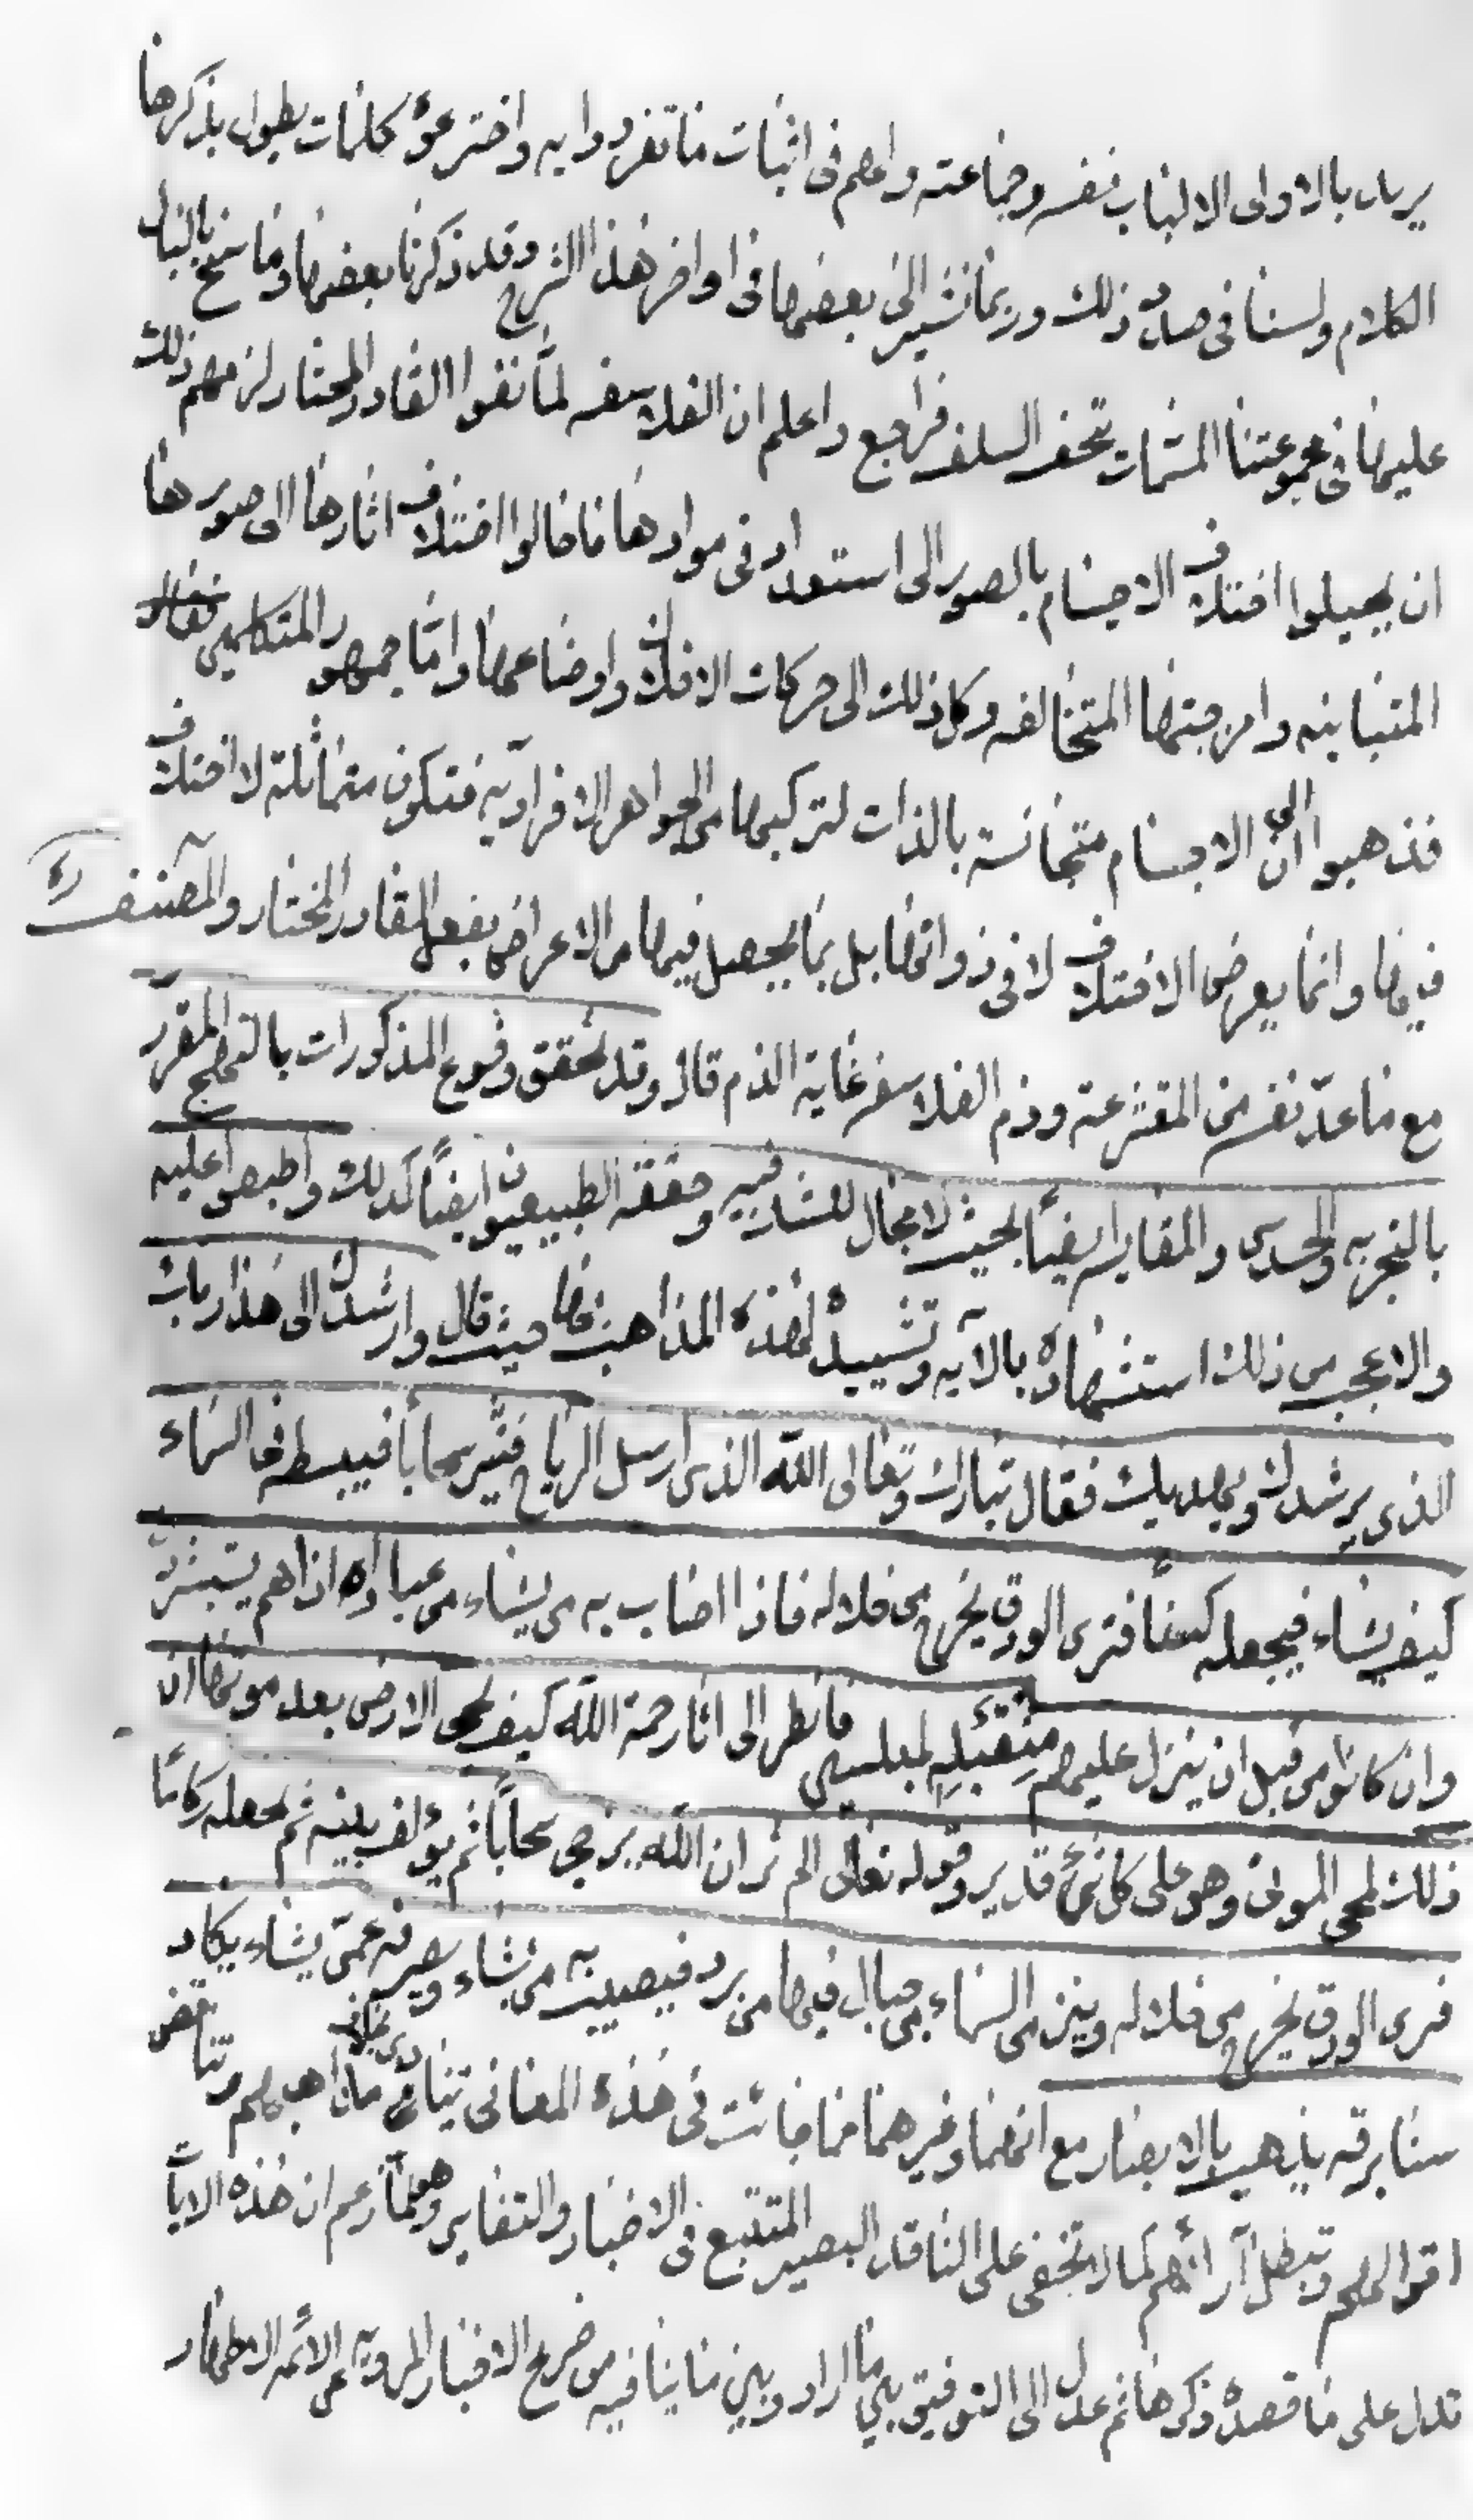 يريد بالاولى الالباب نفسه وجماعته واعلم فى اثبات ما تفردوا به واخترعوا كلمات يطول بذكرها
الكلام ولسنا فى صدد ذلك وربما نشير الى بعضها فى اواخر هذا الشرح وقد ذكرنا بعضها وما سنح بالبال
عليها فى مجموعتنا المسمات بتحف السلف فراجع واعلم ان الفلاسفه لمّا نفوا القادر المختار لزمهم ذلك
ان يحيلوا اختلاف الاجسام بالصور الى استعداد فى موادها فاحالوا اختلاف اثارها الى صورها
المتباينه وامزجتها المتخالفه وكل ذلك الى حركات الافلاك واوضاعها وامّا جمهور المتكلمين
فذهبوا الى ان الاجسام متجانسة بالذات لتركيبها من الجواهر الافراديّه فتكون متماثلة لا اختلاف
فيها وانما يعرض الاختلاف لا فى ذواتها بل بما يحصل فيها من الاعراض بفعل القادر المختار والمصنف ره
مع ما عدّ نفسه من المتشرعة وذم الفلاسفه غاية الذم قال وقد تحقق وقوع المذكورات بالنهج المقرر
بالتجربه والحدس والمقايسه ايضًا بحيث لا مجال للشك فيه وحققه الطبيعيون ايضًا كذلك واطبقوا عليه
والاعجب من ذلك استشهاده بالآيه وتشييده لهذه المذاهب بها حيث قال وارشدك الى هذا ربك
الذى يرشدك ويهديك فقال تبارك وتعالى الله الذى ارسل الرياح فتثير سحابا فيبسطه فى السماء
كيف يشاء فيجعله كسفًا فترى الودق يخرج من خلاله فاذا اصاب به من يشاء من عباده اذا هم يستبشرون
وان كانوا من قبل ان ينزل عليهم من قبله لمبلسين فانظر الى اثار رحمة الله كيف يحى الارض بعد موتها ان
ذلك لمحى الموتى وهو على كل شئ قدير وقوله تعالى الم تر ان الله يزجى سحاباً ثم يؤلف بينه ثم يجعله ركامًا
فترى الودق يخرج من خلاله وينزل من السماء من جبال فيها من برد فيصيب به من يشاء ويصرفه عمّن يشاء يكاد
سنا برقه يذهب بالابصار مع انهما وغيرهما مما جائت فى هذه المعانى تنادى على خلاف مذاهبهم وتناقض
اقوالهم وتبطل آرائهم كما لا تخفى على الناقد البصير المتتبع فى الاخبار والتفاسير وهو لمّا زعم ان هذه الايات
تدل على ما قصده ذكرها ثم عدل الى التوفيق بين ما اراد وبين ما ينافيه من صريح الاخبار المرويّه عن الائمه الاطهار